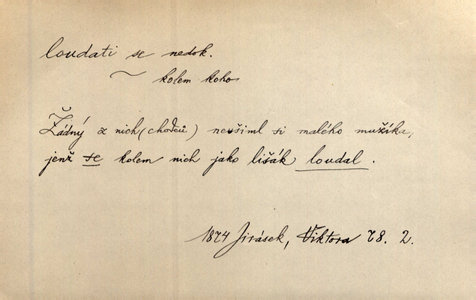 loudati se nedok.
~ kolem koho
Žádný z nich (chodců) nevšiml si malého mužíka,
jenž se kolem nich jako lišák loudal.
1874 Jirásek, Viktora 78. 2.